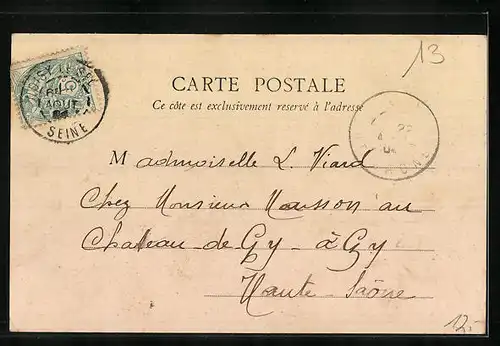 13
CARTE POSTALE
Ce côté est exclusivement réservé à l'adresse
AOUT
SEINE
Mademoiselle L. Viard
Chez Monsieur Housson au
Chateau-de Gy-à Gy
Haute-Saône
12.-